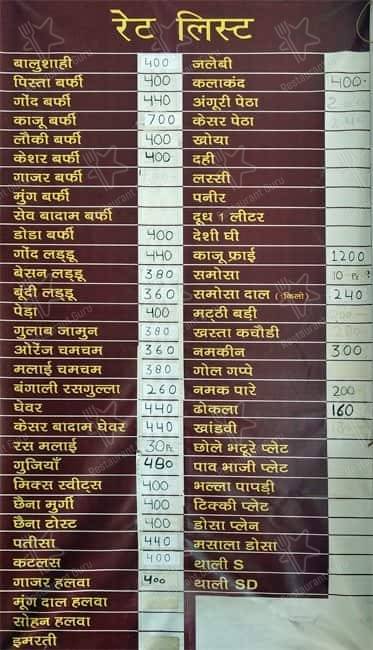 रेट लिस्ट
बालुशाही 400
पिस्ता बर्फी 400
गोंद बर्फी 440
काजू बर्फी 700
लौकी बर्फी 400
केशर बर्फी 400
गाजर बर्फी
मुंग बर्फी
सेव बादाम बर्फी
डोडा बर्फी 400
गोंद लड्डू 440
बेसन लड्डू 380
बूंदी लड्डू 360
पेड़ा 400
गुलाब जामुन 380
ओरेंज चमचम 360
मलाई चमचम 380
बंगाली रसगुल्ला 260
घेवर 440
केसर बादाम घेवर 440
रस मलाई 30
गुजियाँ 480
मिक्स स्वीट्स 400
छैना मुर्गी 400
छैना टोस्ट 400
पतीसा 440
कटलस 400
गाजर हलवा 400
मूंग दाल हलवा
सोहन हलवा
इमरती
जलेबी
कलाकंद 400
अंगूरी पेठा
केसर पेठा
खोया
दही
लस्सी
पनीर
दूध 1 लीटर
देशी घी
काजू फ्राई 1200
समोसा 10
समोसा दाल (1किलो) 240
मट्ठी बड़ी
खस्ता कचौडी
नमकीन 300
गोल गप्पे
नमक पारे 200
ढोकला 160
खांडवी
छोले भटूरे प्लेट
पाव भाजी प्लेट
भल्ला पापड़ी
टिक्की प्लेट
डोसा प्लेन
मसाला डोसा
थाली S
थाली SD